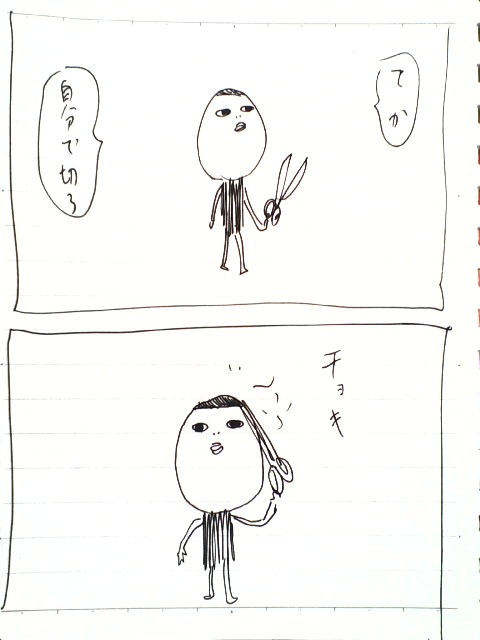 てか
自分で切ろ
チョキ